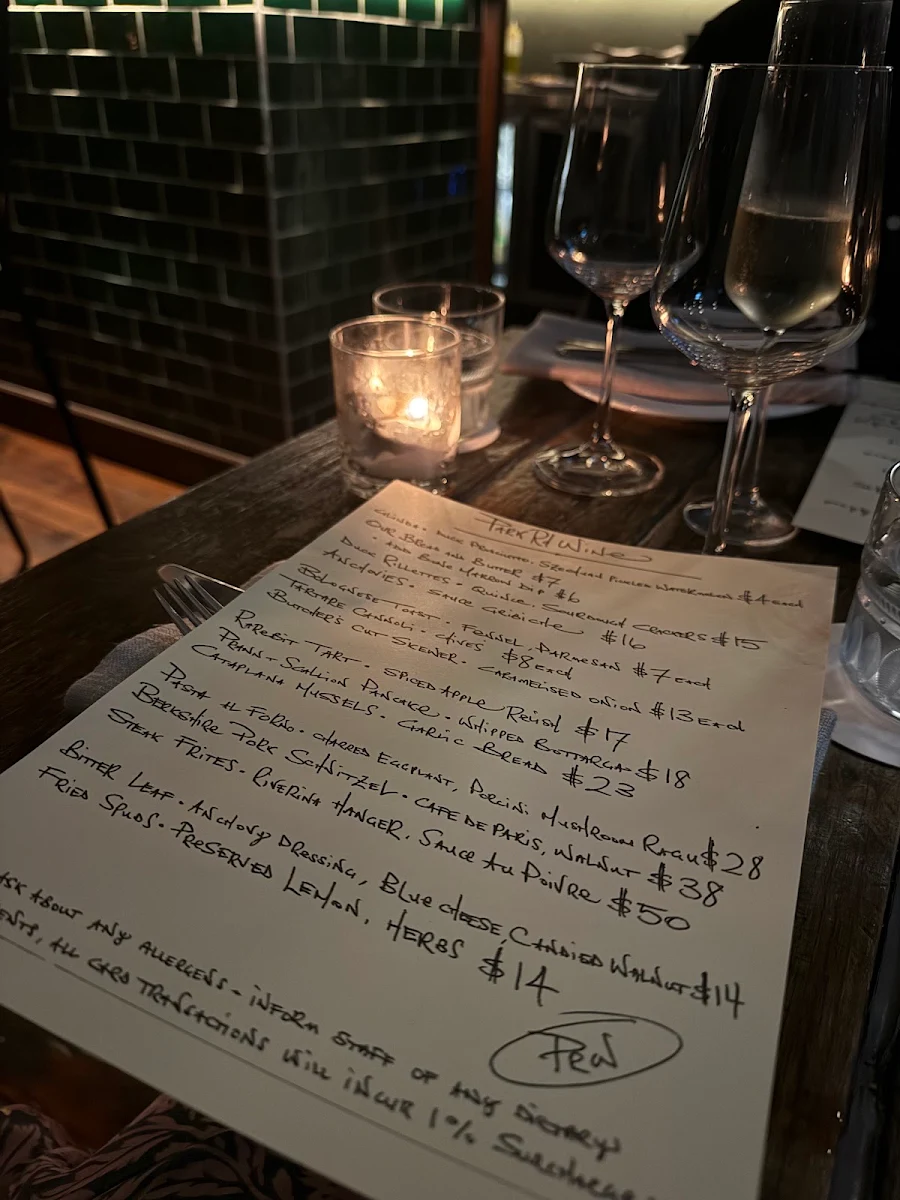 PARK RD WINE
DUCK PROSCIUTTO, SZECHUAN PICKLED WATERMELON $4 EACH
OUR BREAD AND BUTTER $7
• ADD BONE MARROW DIP $6
DUCK RILLETTES • QUINCE, SOURDOUGH CRACKERS $15
ANCHOVIES • SAUCE GRIBICHE $16
BOLOGNESE TOAST • FENNEL, PARMESAN $7 EACH
TARTARE CANNOLI • CHIVES $8 EACH
BUTCHER'S CUT SKEWER • CARAMELISED ONION $13 EACH
RAREBIT TART • SPICED APPLE RELISH $17
PRAWN & SCALLION PANCAKE • WHIPPED BOTTARGA $18
CATAPLANA MUSSELS • GARLIC BREAD $23
PASTA AL FORNO • CHARRED EGGPLANT, PORCINI MUSHROOM RAGU $28
BERKSHIRE PORK SCHNITZEL • CAFE DE PARIS, WALNUT $38
STEAK FRITES • RIVERINA HANGER, SAUCE AU POIVRE $50
BITTER LEAF • ANCHOVY DRESSING, BLUE CHEESE, CANDIED WALNUT $14
FRIED SPUDS • PRESERVED LEMON, HERBS $14
PRW
ASK ABOUT ANY ALLERGENS - INFORM STAFF OF ANY DIETARY
ALL CARD TRANSACTIONS WILL INCUR 1% SURCHARGE